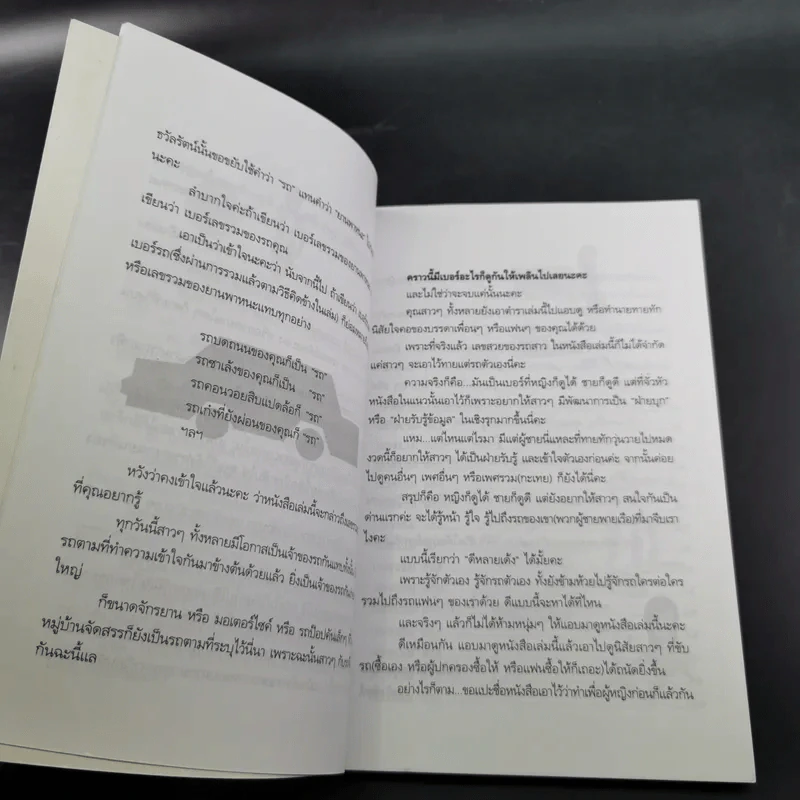 ธวัลรัตน์นั้นขอขยับใช้คำว่า "รถ" แทนคำว่า "ยานพาหนะ"
นะคะ
ลำบากใจค่ะถ้าเขียนว่า เบอร์เลขรวมของยานพาหนะ
เขียนว่า เบอร์เลขรวมของรถคุณ
เอาเป็นว่าเข้าใจนะคะว่า นับจากนี้ไป ถ้าเขียนว่า
เบอร์รถ(ซึ่งผ่านการรวมแล้วตามวิธีคิดข้างในเล่ม)
หรือเลขรวมของยานพาหนะแทบทุกอย่าง
รถบดถนนของคุณก็เป็น "รถ"
รถซาเล้งของคุณก็เป็น "รถ"
รถคอนวอยสิบแปดล้อก็ "รถ"
รถเก๋งที่ยังผ่อนของคุณก็ "รถ"
ฯลฯ
หวังว่าคงเข้าใจแล้วนะคะ ว่าหนังสือเล่มนี้จะกล่าวถึง
ที่คุณอยากรู้
ทุกวันนี้สาวๆ ทั้งหลายมีโอกาสเป็นเจ้าของรถกันแทบทั้งนั้น
รถตามที่ทำความเข้าใจกันมาข้างต้นด้วยแล้ว ยิ่งเป็นเจ้าของรถกัน
ใหญ่
ก็ขนาดจักรยาน หรือ มอเตอร์ไซค์ หรือ รถป๊อปคันเล็กๆ
หมู่บ้านจัดสรรก็ยังเป็นรถตามที่ระบุไว้นี่นา เพราะฉะนั้นสาวๆ
กันฉะนี้แล
คราวนี้มีเบอร์อะไรก็ดูกันให้เพลินไปเลยนะคะ
และไม่ใช่ว่าจะจบแค่นั้นนะคะ
คุณสาวๆ ทั้งหลายยังเอาตำราเล่มนี้ไปแอบดู หรือทำนายทายทัก
นิสัยใจคอของบรรดาเพื่อนๆ หรือแฟนๆ ของคุณได้ด้วย
เพราะที่จริงแล้ว เลขสวยของรถสาว ในหนังสือเล่มนี้ก็ไม่ได้จำกัด
แค่สาวๆ จะเอาไว้ทายแต่รถตัวเองนี่คะ
ความจริงก็คือ...มันเป็นเบอร์ที่หญิงก็ดูได้ ชายก็ดูดี แต่ที่จั่วหัว
หนังสือในแนวนั้นเอาไว้ก็เพราะอยากให้สาวๆ มีพัฒนาการเป็น "ฝ่ายบุก"
หรือ "ฝ่ายรับรู้ข้อมูล" ในเชิงรุกมากขึ้นนี่คะ
แหม...แต่ไหนแต่ไรมา มีแต่ผู้ชายนี่แหละที่ทายทักวุ่นวายไปหมด
งวดนี้ก็อยากให้สาวๆ ได้เป็นฝ่ายรับรู้ และเข้าใจตัวเองก่อนค่ะ จากนั้นค่อย
ไปดูคนอื่นๆ เพศอื่นๆ หรือเพศรวม(กะเทย) ก็ยังได้นี่คะ
สรุปก็คือ หญิงก็ดูได้ ชายก็ดูดี แต่ยังอยากให้สาวๆ สนใจกันเป็น
ด่านแรกค่ะ จะได้รู้หน้า รู้ใจ รู้ไปถึงรถของเขา(พวกผู้ชายพายเรือ)ที่มาจีบเรา
ไงคะ
แบบนี้เรียกว่า "ดีหลายเด้ง" ได้มั้ยคะ
เพราะรู้จักตัวเอง รู้จักรถตัวเอง ทั้งยังข้ามห้วยไปรู้จักรถใครต่อใคร
รวมไปถึงรถแฟนๆ ของเราด้วย ดีแบบนี้จะหาได้ที่ไหน
และจริงๆ แล้วก็ไม่ได้ห้ามหนุ่มๆ ให้แอบมาดูหนังสือเล่มนี้นะคะ
ดีเหมือนกัน แอบมาดูหนังสือเล่มนี้แล้วเอาไปดูนิสัยสาวๆ ที่ขับ
รถ(ซื้อเอง หรือผู้ปกครองซื้อให้ หรือแฟนซื้อให้ก็เถอะ)ได้ถนัดยิ่งขึ้น
อย่างไรก็ตาม...ขอแปะชื่อหนังสือเอาไว้ว่าทำเพื่อผู้หญิงก่อนก็แล้วกัน